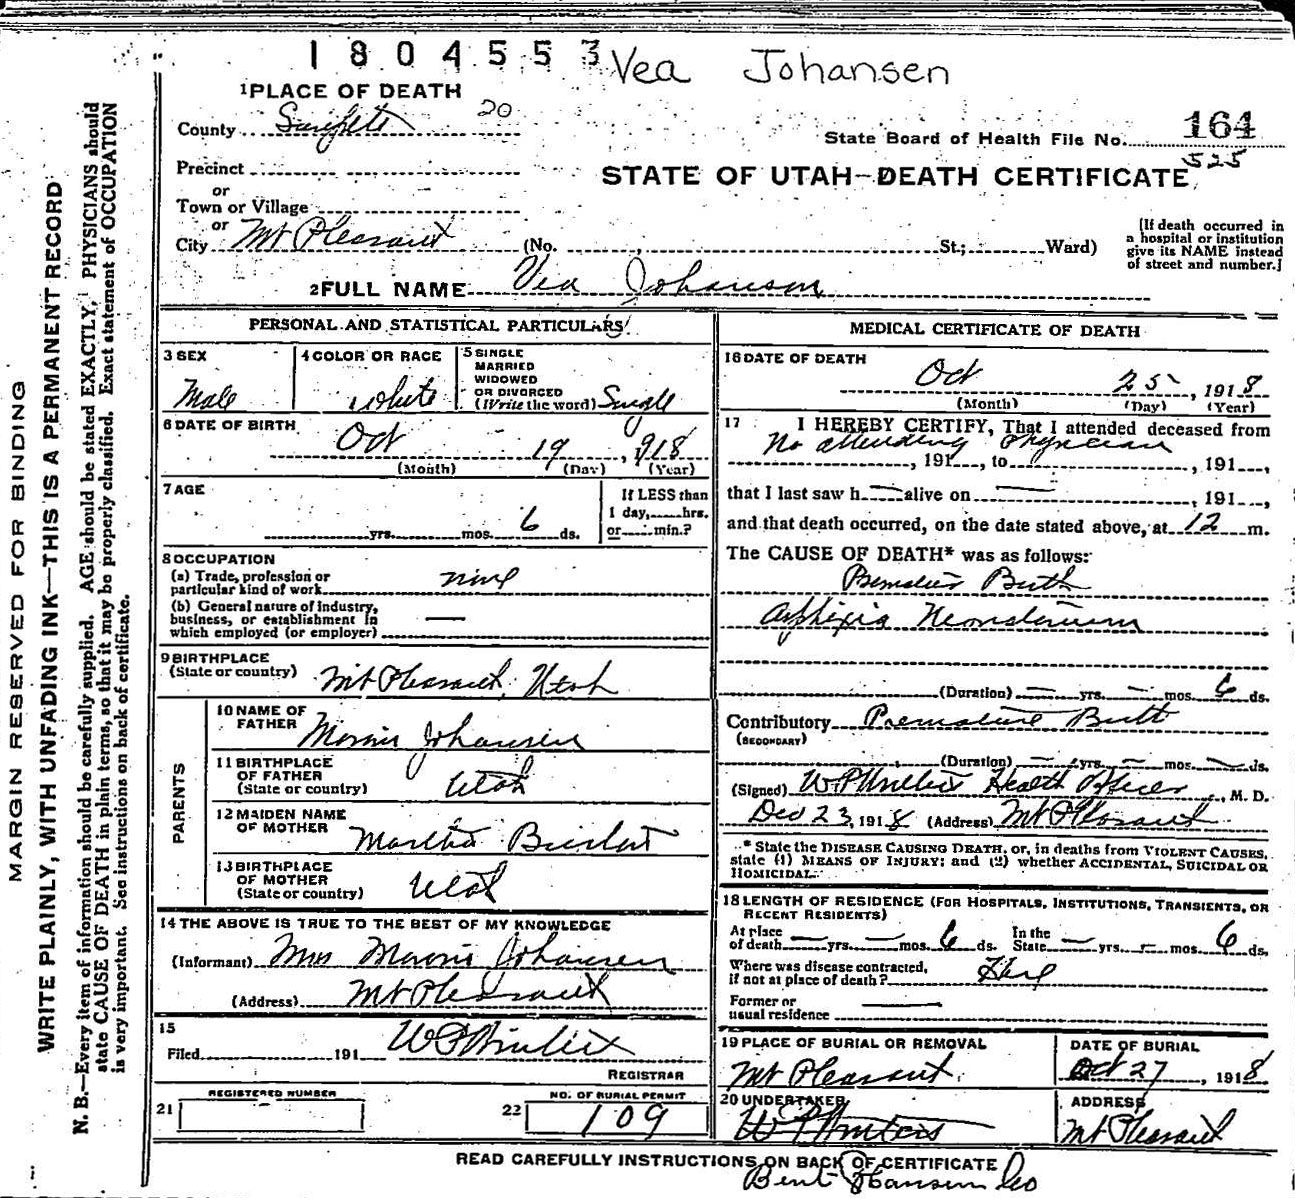 1804553 Vea Johansen
1 PLACE OF DEATH
County Sanpete 20
State Board of Health File No. 164
525
Precinct
STATE OF UTAH—DEATH CERTIFICATE
or
Town or Village
or
City Mt Pleasant (No. St.; Ward)
[If death occurred in
a hospital or institution
give its NAME instead
of street and number.]
2 FULL NAME Vea Johansen
PERSONAL AND STATISTICAL PARTICULARS
3 SEX
Male
4 COLOR OR RACE
White
5 SINGLE
MARRIED
WIDOWED
OR DIVORCED
(Write the word) Single
6 DATE OF BIRTH
Oct 19, 918
(Month) (Day) (Year)
7 AGE
yrs. mos. 6 ds.
If LESS than
1 day, hrs.
or min.?
8 OCCUPATION
(a) Trade, profession or
particular kind of work
(b) General nature of industry,
business, or establishment in
which employed (or employer) —
9 BIRTHPLACE
(State or country) Mt Pleasant, Utah
PARENTS
10 NAME OF
FATHER Johansen
11 BIRTHPLACE
OF FATHER
(State or country) Utah
12 MAIDEN NAME
OF MOTHER Martha
13 BIRTHPLACE
OF MOTHER
(State or country) Utah
14 THE ABOVE IS TRUE TO THE BEST OF MY KNOWLEDGE
(Informant) Mrs Johansen
(Address) Mt Pleasant
15
Filed 191
REGISTRAR
REGISTERED NUMBER
21
NO. OF BURIAL PERMIT
22 109
MEDICAL CERTIFICATE OF DEATH
16 DATE OF DEATH
Oct 25, 1918
(Month) (Day) (Year)
17 I HEREBY CERTIFY, That I attended deceased from
No attending Physician
, 191 , to , 191 ,
that I last saw h — alive on — , 191 ,
and that death occurred, on the date stated above, at 12 m.
The CAUSE OF DEATH* was as follows:
Premature Birth
Asphixia Neonatorium
(Duration) — yrs. — mos. 6 ds.
Contributory Premature Birth
(SECONDARY)
(Duration) — yrs. — mos. — ds.
(Signed) Health Officer, M. D.
Dec 23, 1918 (Address) Mt Pleasant
* State the DISEASE CAUSING DEATH, or, in deaths from VIOLENT CAUSES,
state (1) MEANS OF INJURY; and (2) whether ACCIDENTAL, SUICIDAL OR
HOMICIDAL.
18 LENGTH OF RESIDENCE (FOR HOSPITALS, INSTITUTIONS, TRANSIENTS, OR
RECENT RESIDENTS)
At place
of death — yrs. — mos. 6 ds.
In the
State — yrs. — mos. 6 ds.
Where was disease contracted,
if not at place of death? Here
Former or
usual residence —
19 PLACE OF BURIAL OR REMOVAL
Mt Pleasant
DATE OF BURIAL
Oct 27, 1918
20 UNDERTAKER
ADDRESS
Mt Pleasant
READ CAREFULLY INSTRUCTIONS ON BACK OF CERTIFICATE
Bent Hansen Co
MARGIN RESERVED FOR BINDING
WRITE PLAINLY, WITH UNFADING INK—THIS IS A PERMANENT RECORD
N. B.—Every item of information should be carefully supplied. AGE should be stated EXACTLY, PHYSICIANS should
state CAUSE OF DEATH in plain terms, so that it may be properly classified. Exact statement of OCCUPATION
is very important. See instructions on back of certificate.